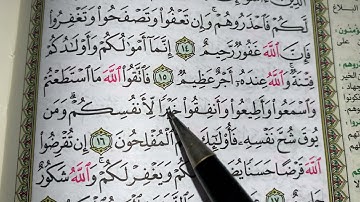 لَكُمْ فَٱحْذَرُوهُمْ ۚ وَإِن تَعْفُوا۟ وَتَصْفَحُوا۟ وَتَغْفِرُوا۟
فَإِنَّ ٱللَّهَ غَفُورٌ رَّحِيمٌ ١٤ إِنَّمَآ أَمْوَٰلُكُمْ وَأَوْلَٰدُكُمْ
فِتْنَةٌ ۚ وَٱللَّهُ عِندَهُۥٓ أَجْرٌ عَظِيمٌ ١٥ فَٱتَّقُوا۟ ٱللَّهَ مَا ٱسْتَطَعْتُمْ
وَٱسْمَعُوا۟ وَأَطِيعُوا۟ وَأَنفِقُوا۟ خَيْرًا لِّأَنفُسِكُمْ ۗ وَمَن
يُوقَ شُحَّ نَفْسِهِۦ فَأُو۟لَٰٓئِكَ هُمُ ٱلْمُفْلِحُونَ ١٦ إِن تُقْرِضُوا۟
ٱللَّهَ قَرْضًا حَسَنًا يُضَٰعِفْهُ لَكُمْ وَيَغْفِرْ لَكُمْ ۚ وَٱللَّهُ شَكُورٌ